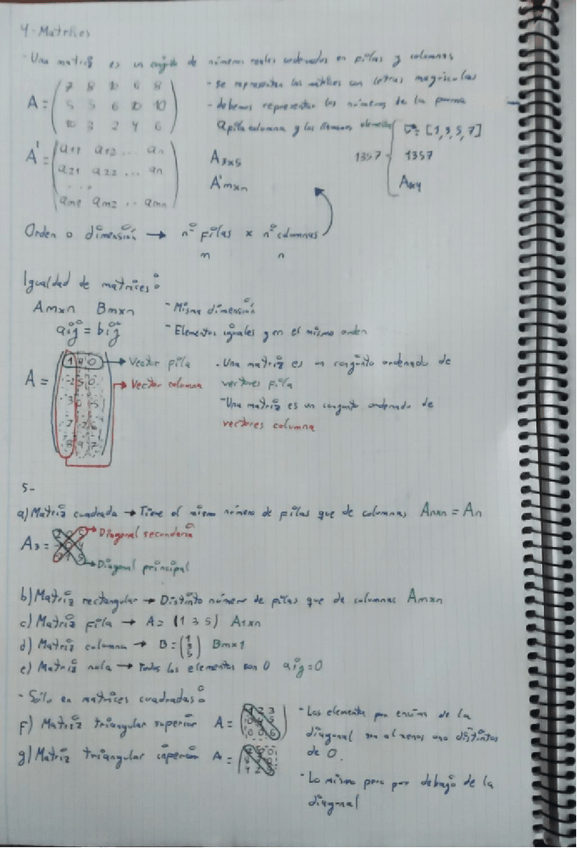 4-Matrices
-Una matriz es un conjunto de números reales ordenados en filas y columnas
A = (7 8 10 6 8
5 5 6 10 10
10 3 2 4 6)
- se representan las matrices con letras mayúsculas
- debemos representar los números de la forma
a fila columna y los llamamos elementos
A' = (a11 a12 ... an
a21 a22 ... an
...
am1 am2 .. amn)
A3x5
A'mxn
1357 { V= [1,3,5,7]
1357
A1x4
Orden o dimensión → nº filas x nº columnas
m n
Igualdad de matrices:
Amxn Bmxn - Misma dimensión
aij = bij - Elementos iguales y en el mismo orden
A = (1 4 0
→ Vector fila
→ Vector columna
- Una matriz es un conjunto ordenado de
vectores fila
- Una matriz es un conjunto ordenado de
vectores columna
5-
a) Matriz cuadrada → Tiene el mismo número de filas que de columnas Anxn = An
A3 =
→ Diagonal secundaria
→ Diagonal principal
b) Matriz rectangular → Distinto número de filas que de columnas Amxn
c) Matriz fila → A = (1 3 5) A1xn
d) Matriz columna → B = (1 3 5) Bmx1
e) Matriz nula → Todos los elementos son 0 aij=0
- Sólo en matrices cuadradas:
f) Matriz triangular superior A =
- Los elementos por encima de la
diagonal son al menos uno distintos
de 0.
g) Matriz triangular inferior A =
- Lo mismo pero por debajo de la
diagonal